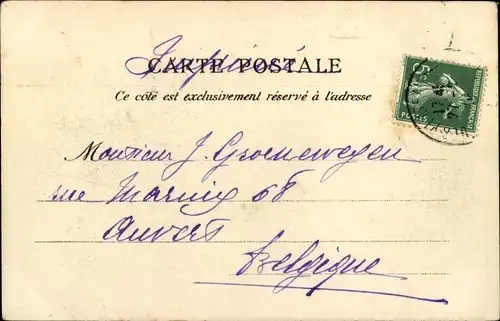 Imprimé
CARTE POSTALE
Ce côté est exclusivement réservé à l'adresse
5c
REPUBLIQUE FRANÇAISE
POSTES
Monsieur J. Groenewegen
rue Marnix 68
Anvers
Belgique